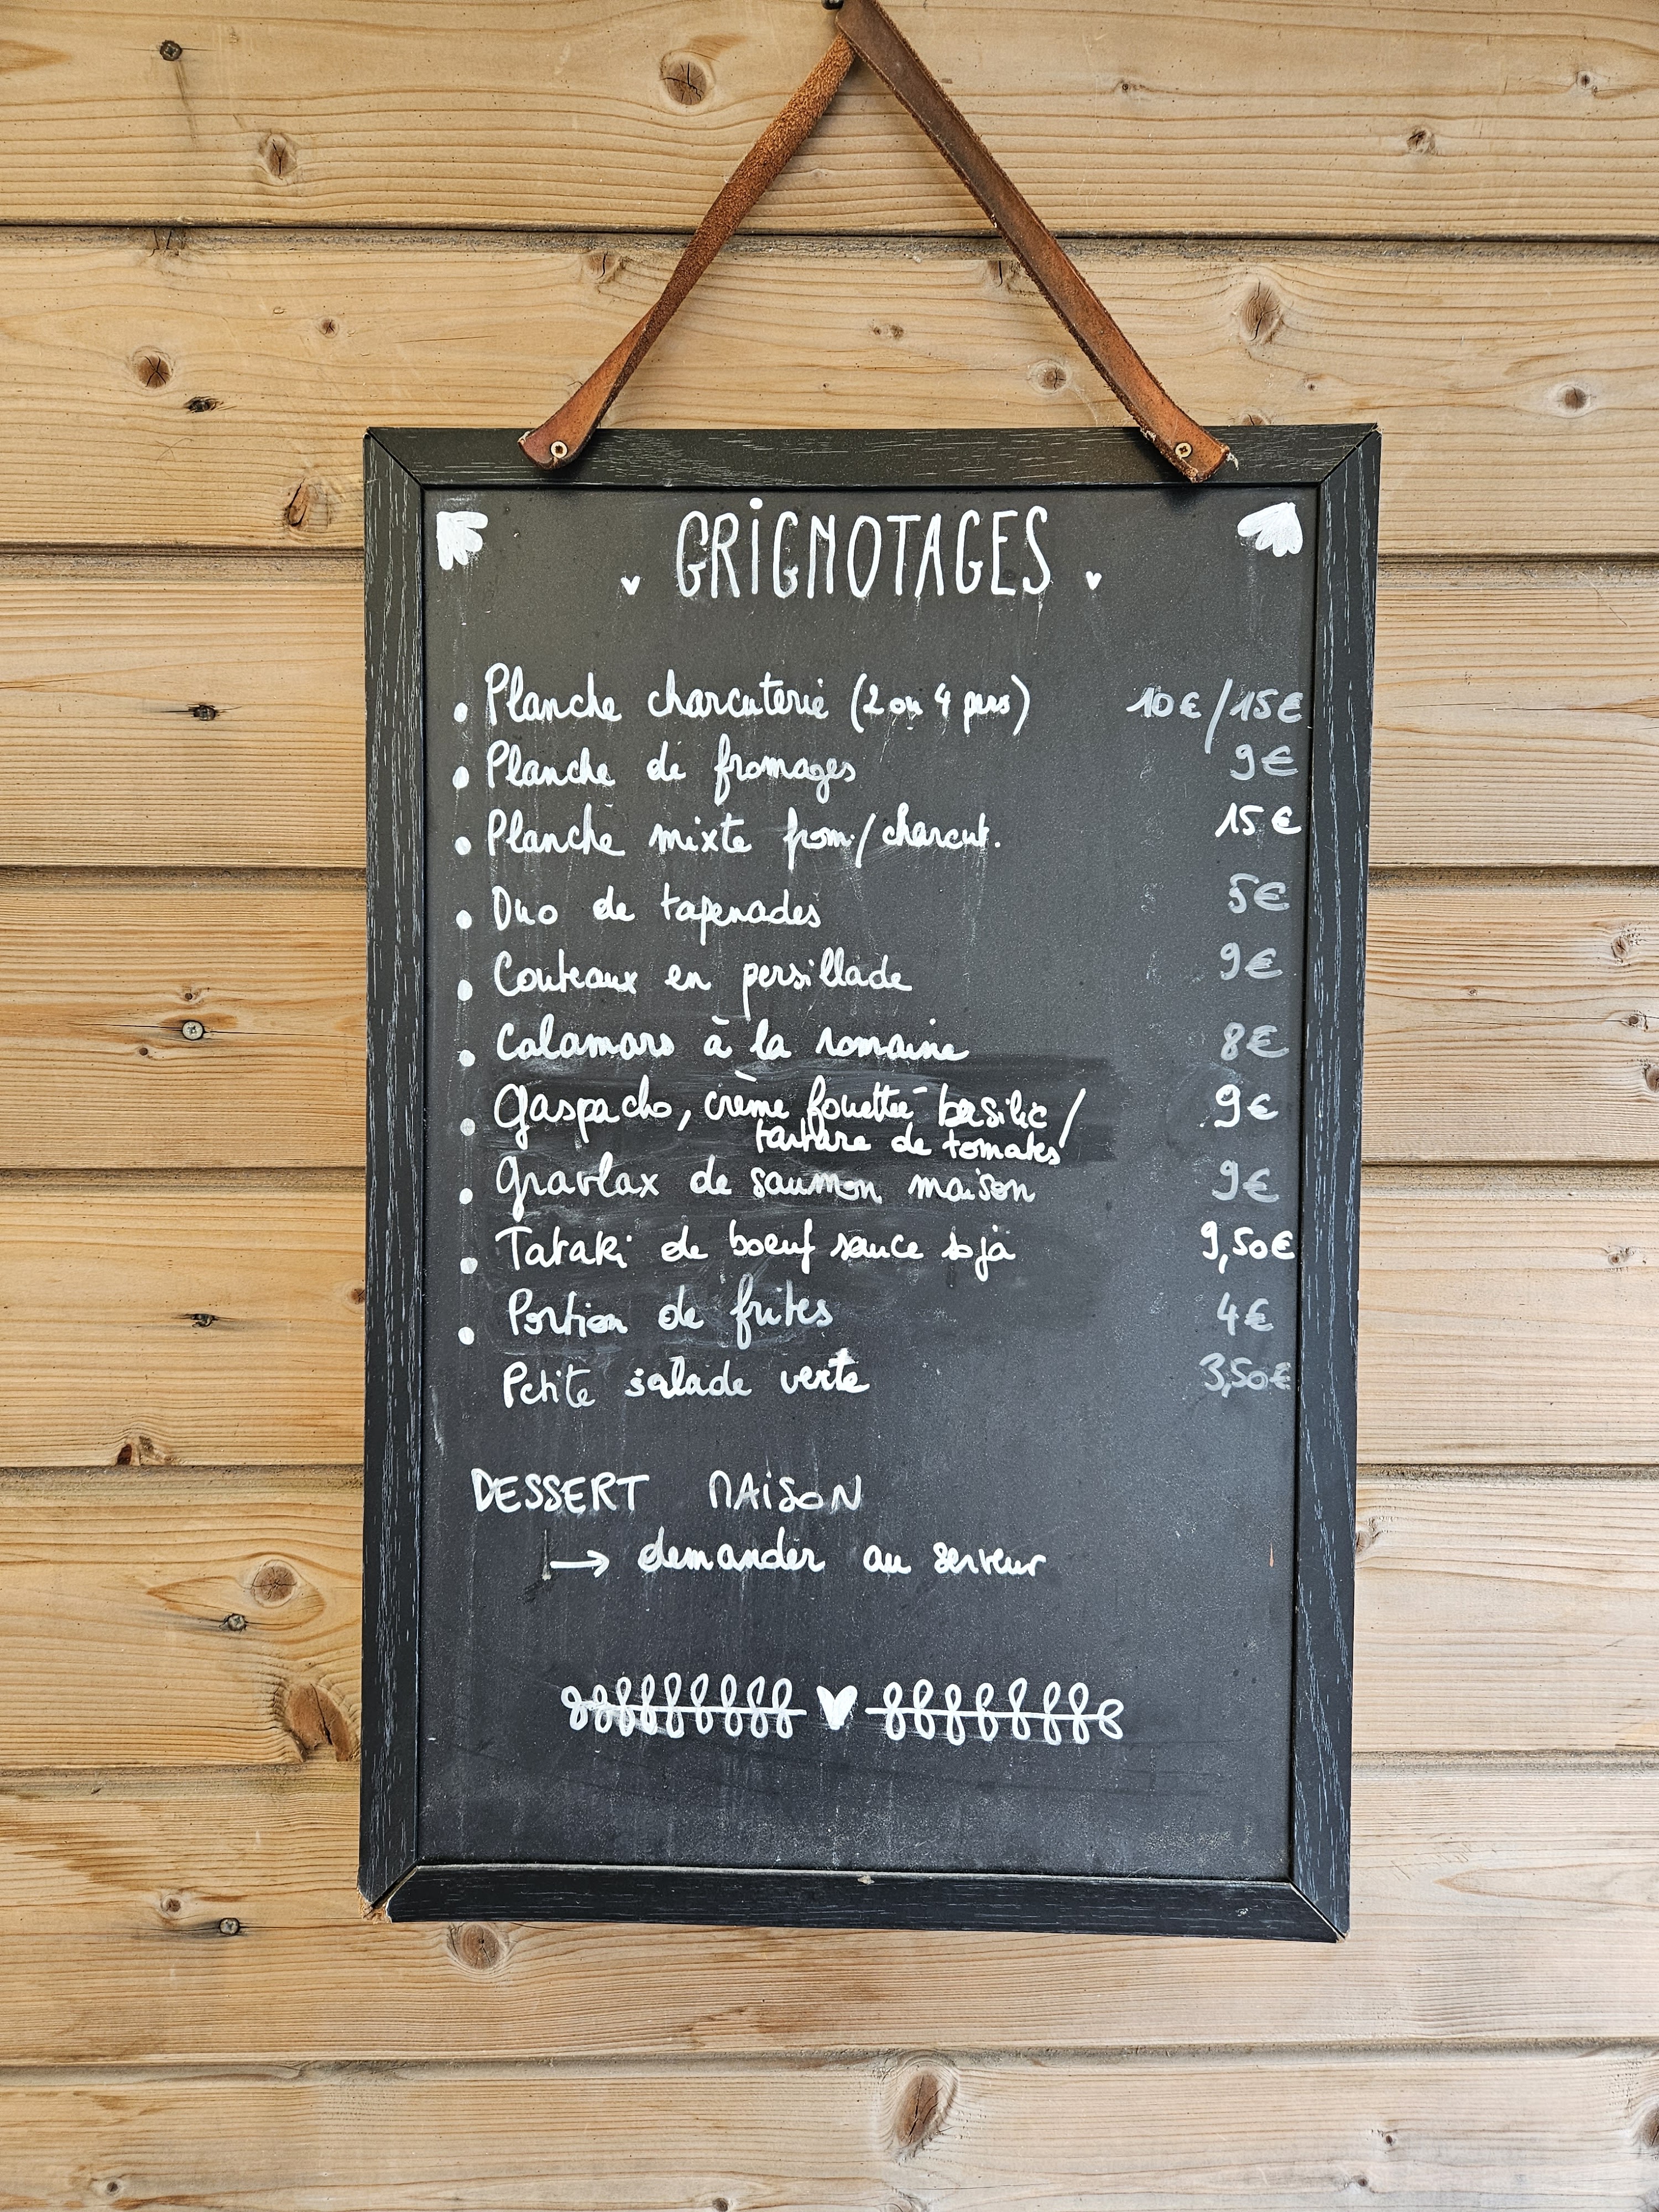 GRiGNOTAGES
• Planche charcuterie (2 ou 4 pers) 10€/15€
• Planche de fromages 9€
• Planche mixte from./charcut. 15€
• Duo de tapenades 5€
• Couteaux en persillade 9€
• Calamars à la romaine 8€
• Gaspacho, crème fouettée basilic / 9€
tartare de tomates
• Gravlax de saumon maison 9€
• Tataki de boeuf sauce soja 9,50€
• Portion de frites 4€
Petite salade verte 3,50€
DESSERT MAiSON
→ demander au serveur